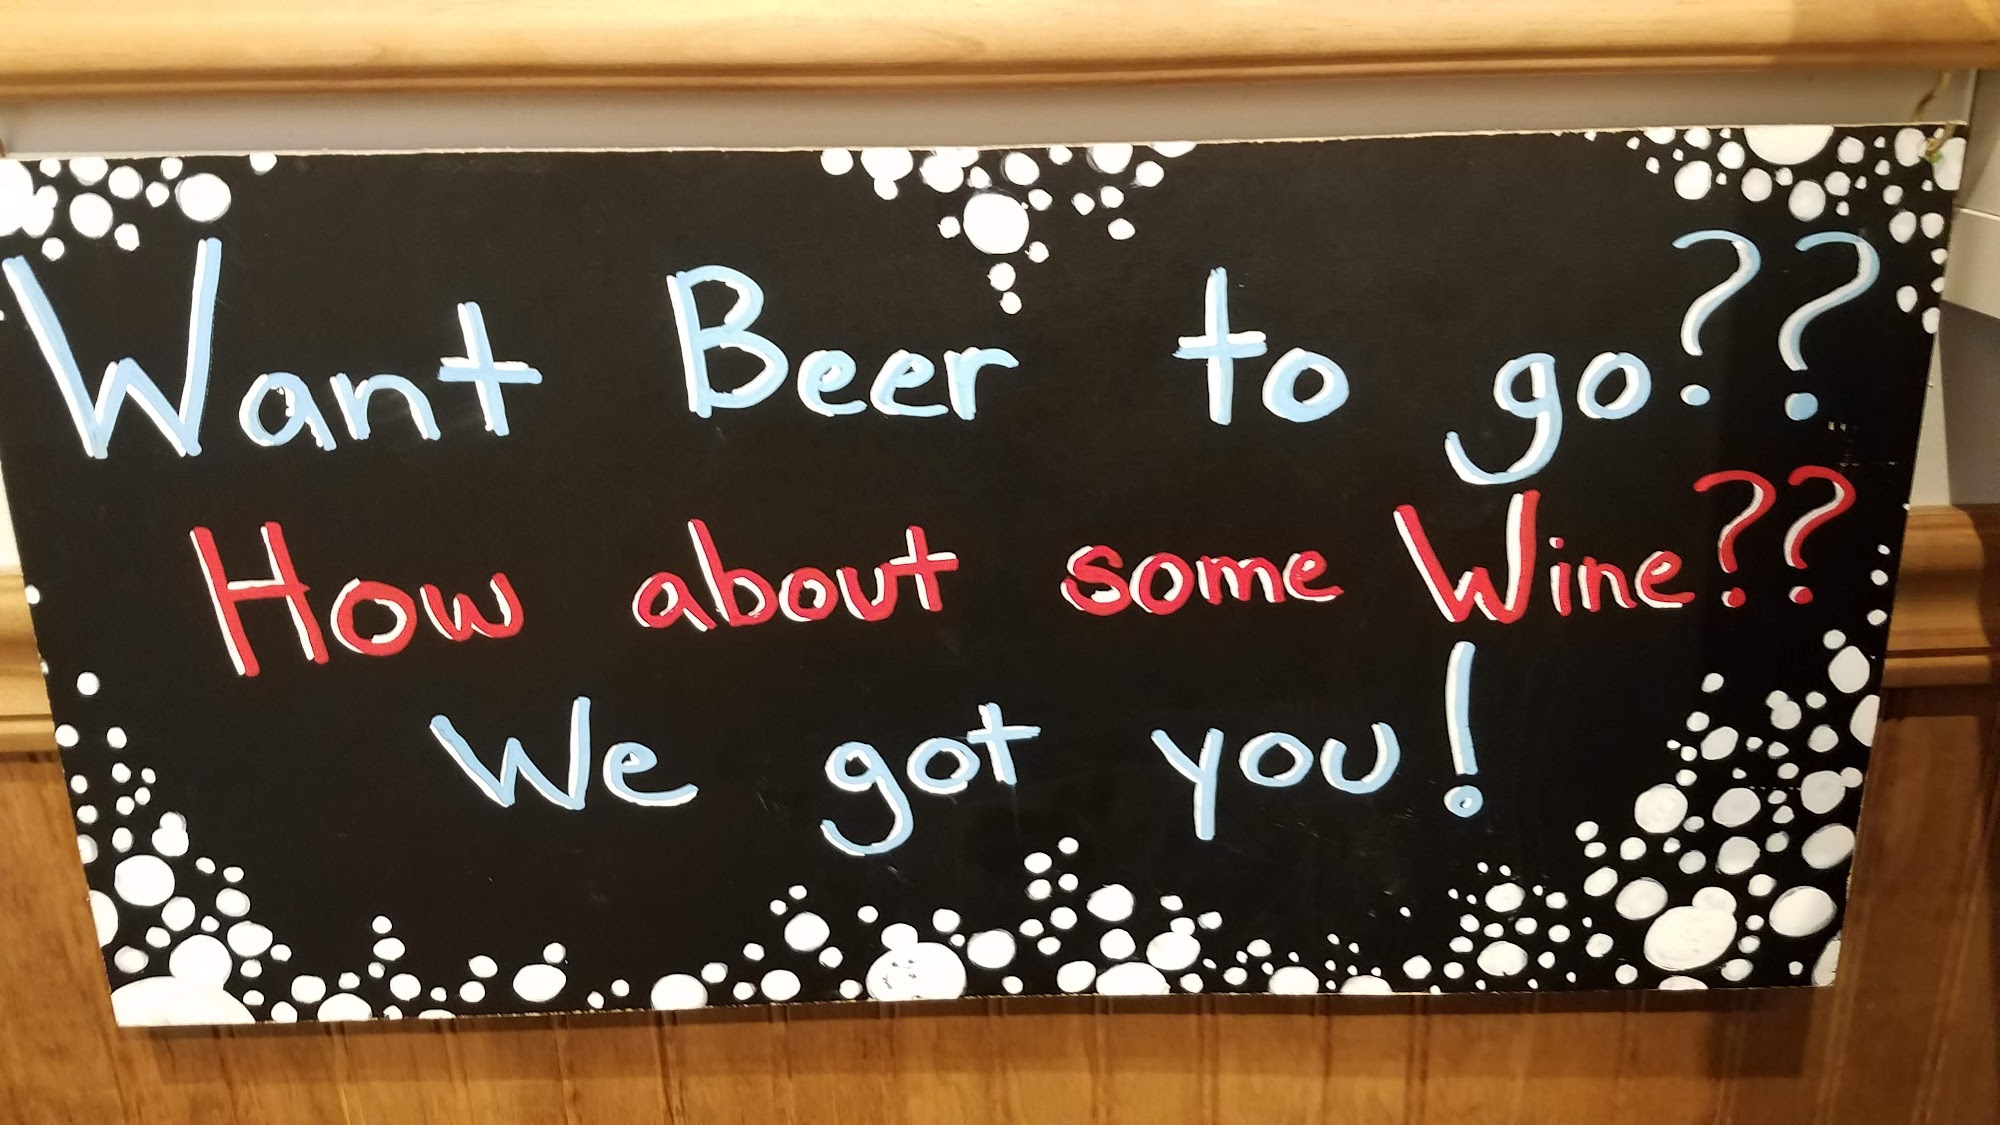 Want Beer to go??
How about some Wine??
We got you!